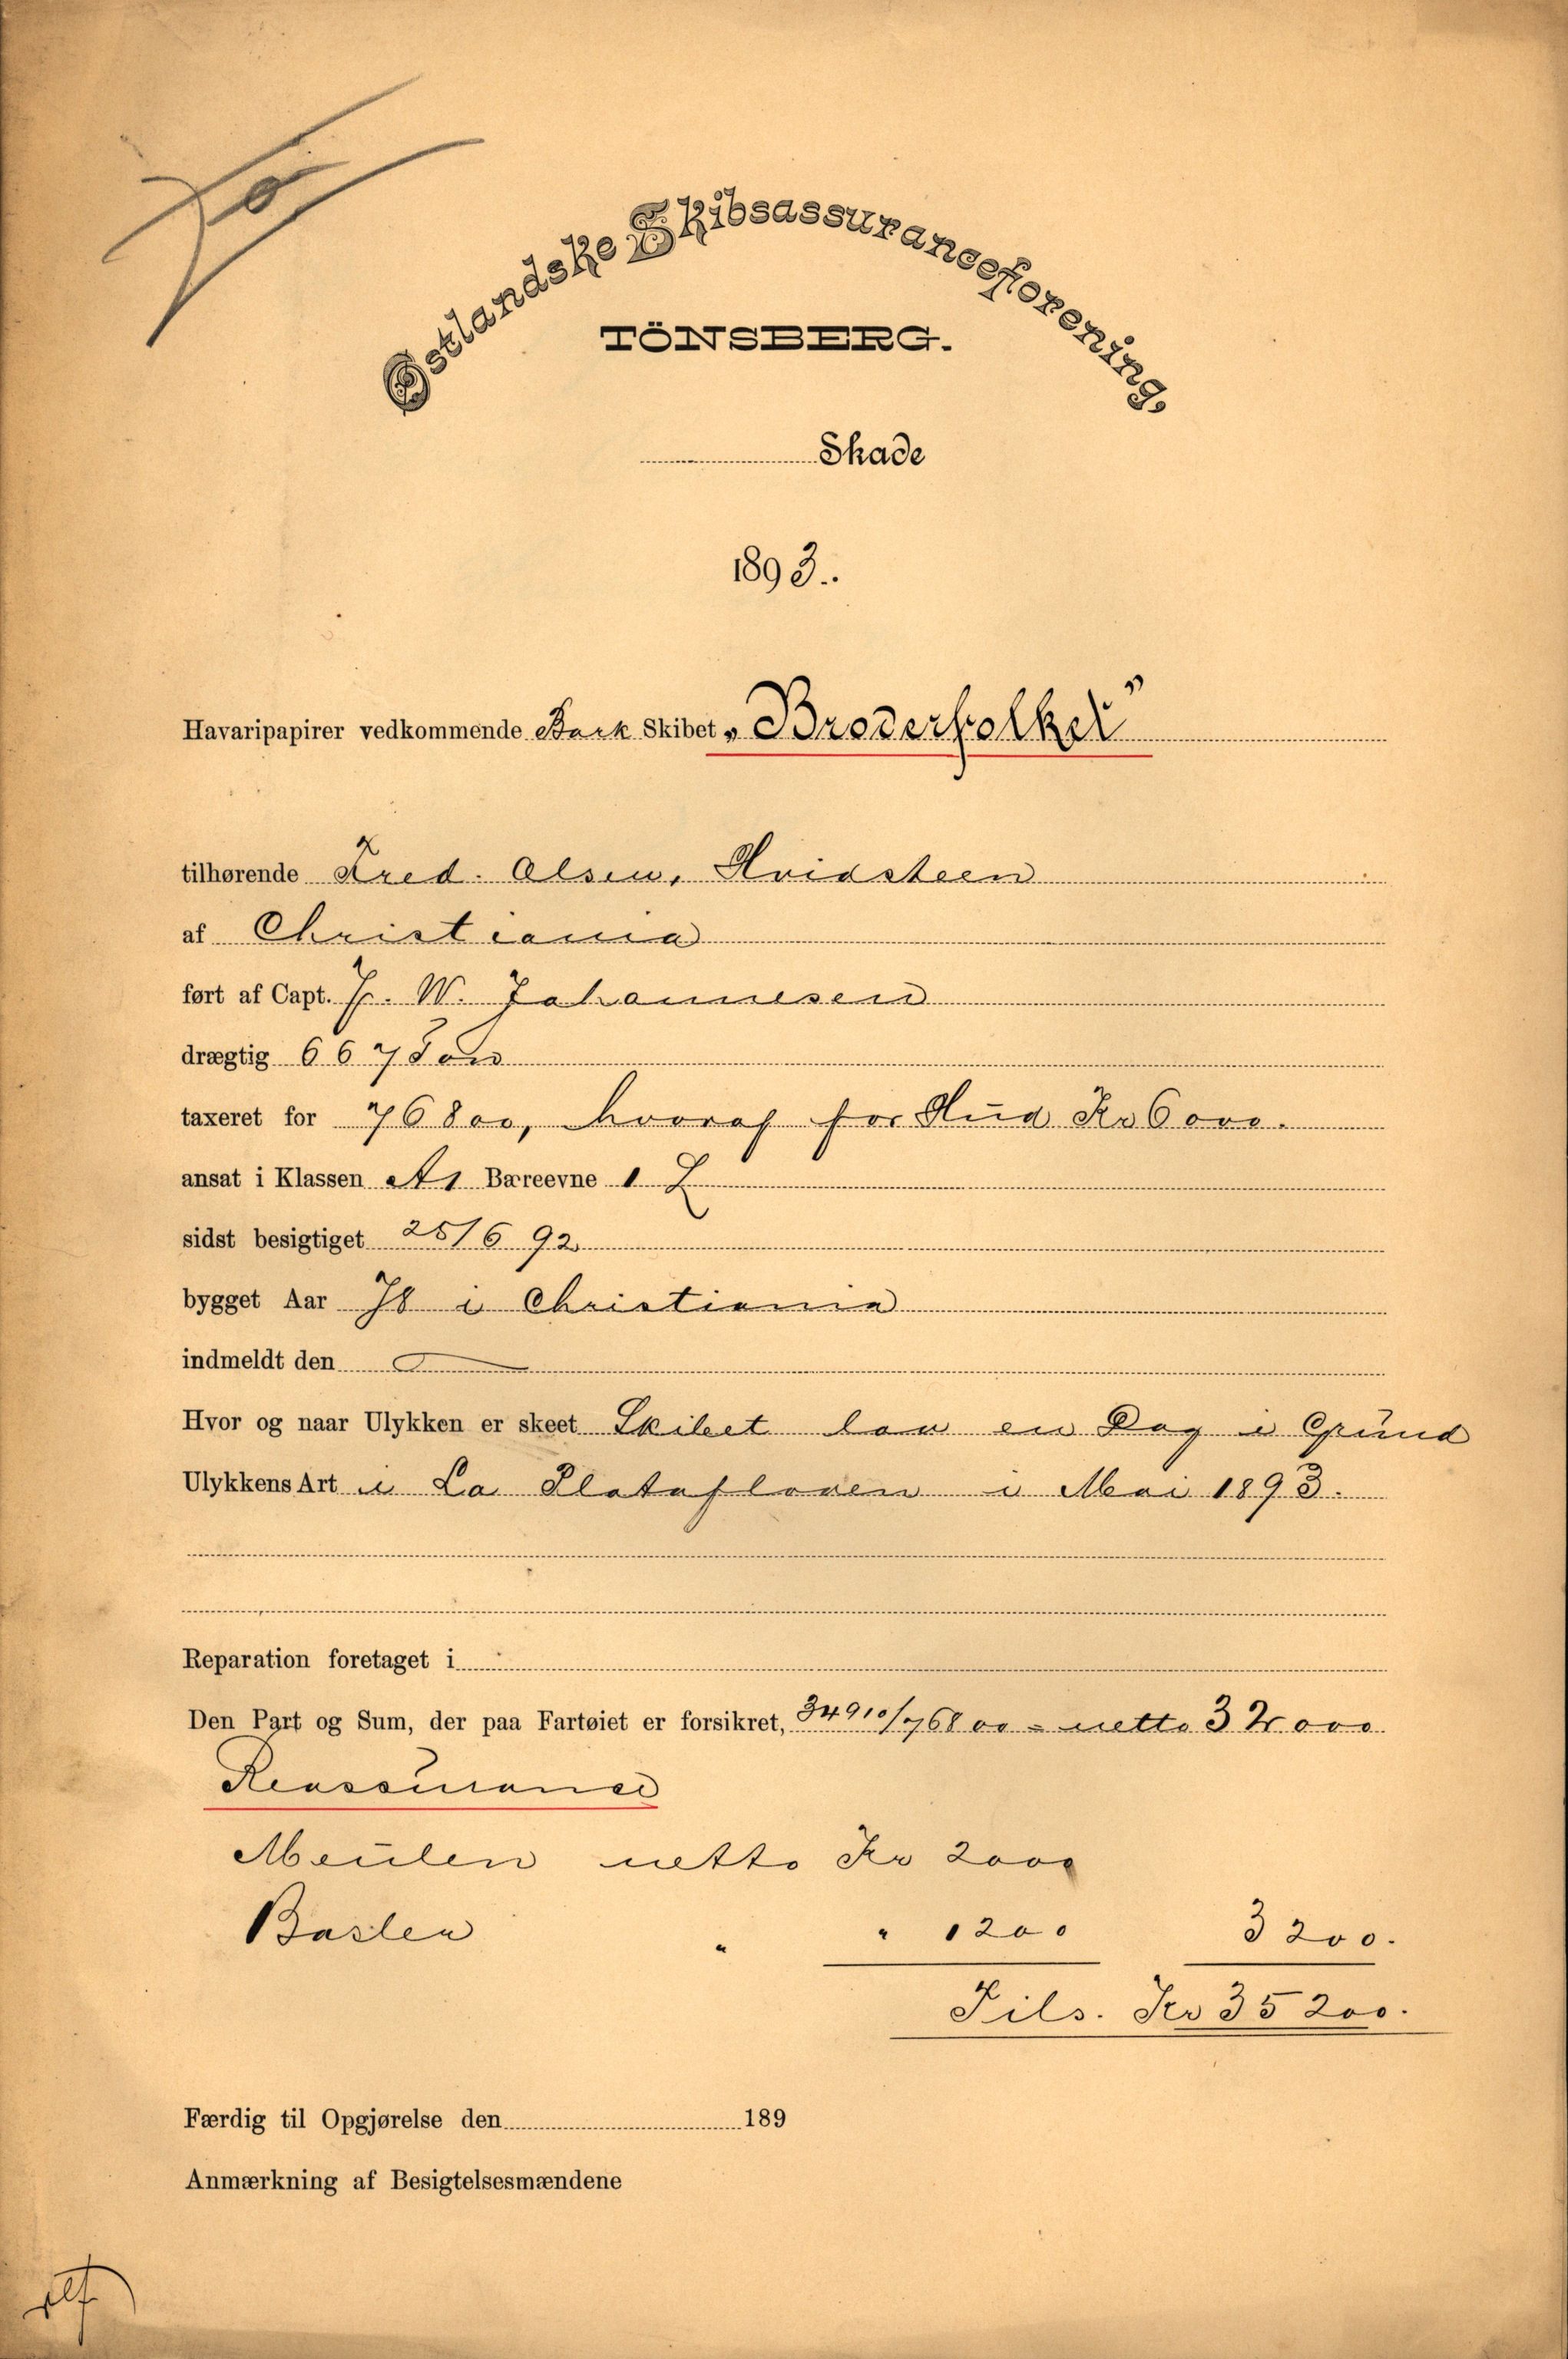 Østlandske Skibsassuranceforening,
TÖNSBERG.
Skade
1893.
Havaripapirer vedkommende Bark Skibet „Broderfolket"
tilhørende Fred. Olsen, Hvidsteen
af Christiania
ført af Capt. J. W. Johannesen
drægtig 667 Tons
taxeret for 76800, hvoraf for Hud Kr 6000.
ansat i Klassen A1 Bæreevne 1 L
sidst besigtiget 25/6 92
bygget Aar 78 i Christiania
indmeldt den
Hvor og naar Ulykken er skeet Skibet laa en Dag i Grund
Ulykkens Art i La Platafloden i Mai 1893.
Reparation foretaget i
Den Part og Sum, der paa Fartøiet er forsikret, 34910/76800 = netto 32000
Reassurance
Meulen netto Kr 2000
Baslen " " 1200 3200.
Tils. Kr 35200.
Færdig til Opgjørelse den 189
Anmærkning af Besigtelsesmændene